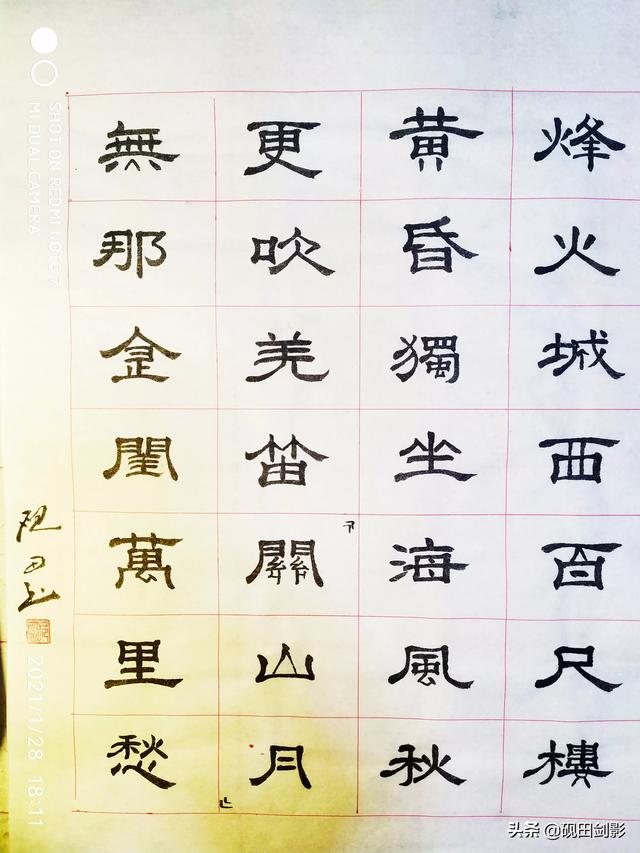 烽火城西百尺樓
黄昏獨坐海風秋
更吹羌笛關山月
無那金閨萬里愁
砚田
SHOT ON REDMI NOTE 7
MI DUAL CAMERA
2021/1/28 18:11
头条 @砚田剑影